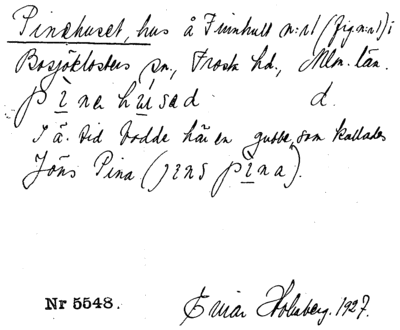 Pinahuset, hus å Finnhult n:r1 (fig n:r1) i
Bosjöklosters sn., Frosta hd., Mlm. län.
pìnahúsəd d.
I ä. tid bodde här en gubbe, som kallades
Jöns Pina (jɪns pìna).
Nr 5548.
Einar Holmberg. 1927.